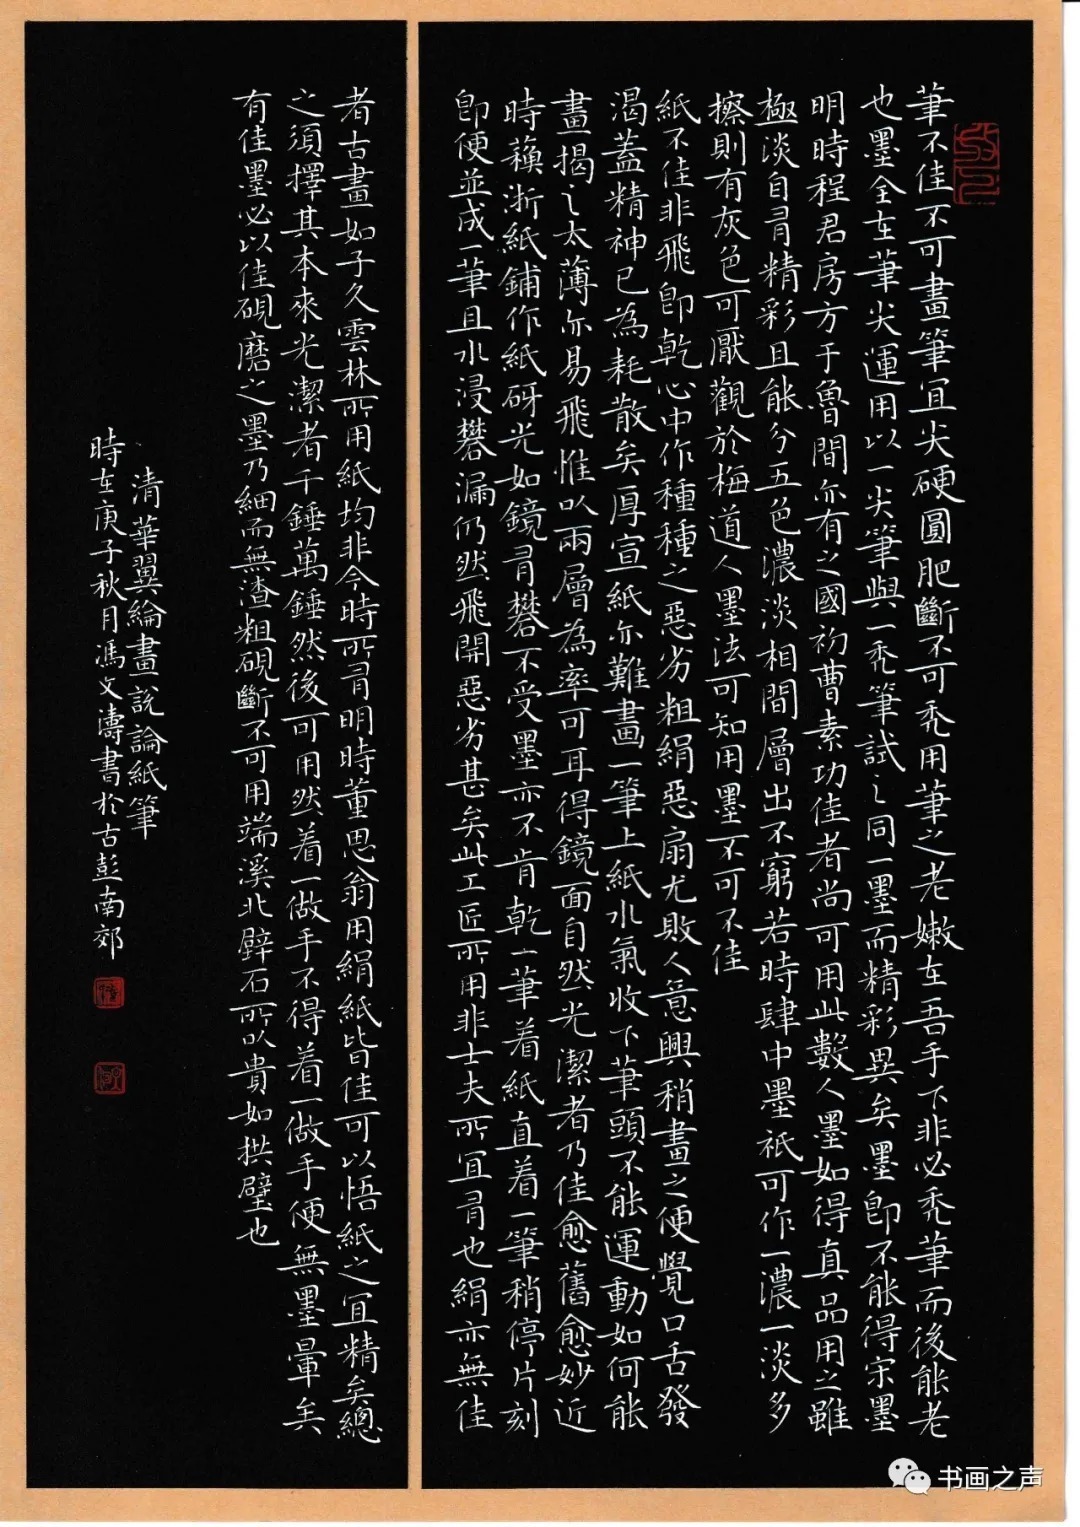 筆不佳不可畫筆宜尖硬圓肥斷不可禿用筆之老嫩在吾手下非必禿筆而後能老
也墨全在筆尖運用以一尖筆與一禿筆試之同一墨而精彩異矣墨即不能得宋墨
明時程君房方于魯間亦有之國初曹素功佳者尚可用此數人墨如得真品用之雖
極淡自有精彩且能分五色濃淡相間層出不窮若時肆中墨祇可作一濃一淡多
擦則有灰色可厭觀於梅道人墨法可知用墨不可不佳
紙不佳非飛即乾心中作種種之惡劣粗絹惡扇尤敗人意興稍畫之便覺口舌發
渴蓋精神已為耗散矣厚宣紙亦難畫一筆上紙水氣收下筆頭不能運動如何能
畫揭之太薄亦易飛惟以兩層為率可耳得鏡面自然光潔者乃佳愈舊愈妙近
時蘓浙紙鋪作紙砑光如鏡有礬不受墨亦不肯乾一筆着紙直着一筆稍停片刻
即便並成一筆且水浸礬漏仍然飛開惡劣甚矣此工匠所用非士夫所宜有也絹亦無佳
者古畫如子久雲林所用紙均非今時所有明時董思翁用絹紙皆佳可以悟紙之宜精矣總
之須擇其本來光潔者千錘萬錘然後可用然着一做手不得着一做手便無墨暈矣
有佳墨必以佳硯磨之墨乃細而無渣粗硯斷不可用端溪北壁石所以貴如拱璧也
清華翼綸畫說論紙筆
時在庚子秋月馮文濤書於古彭南郊
书画之声